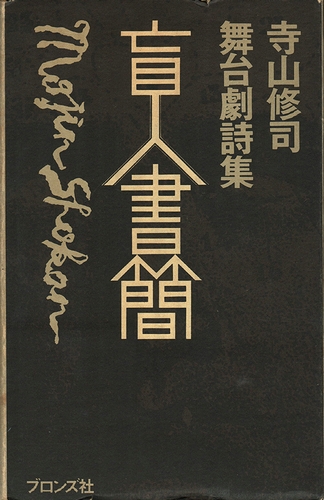 寺山修司
舞台劇詩集
盲人書簡
Mōjin Shokan
ブロンズ社